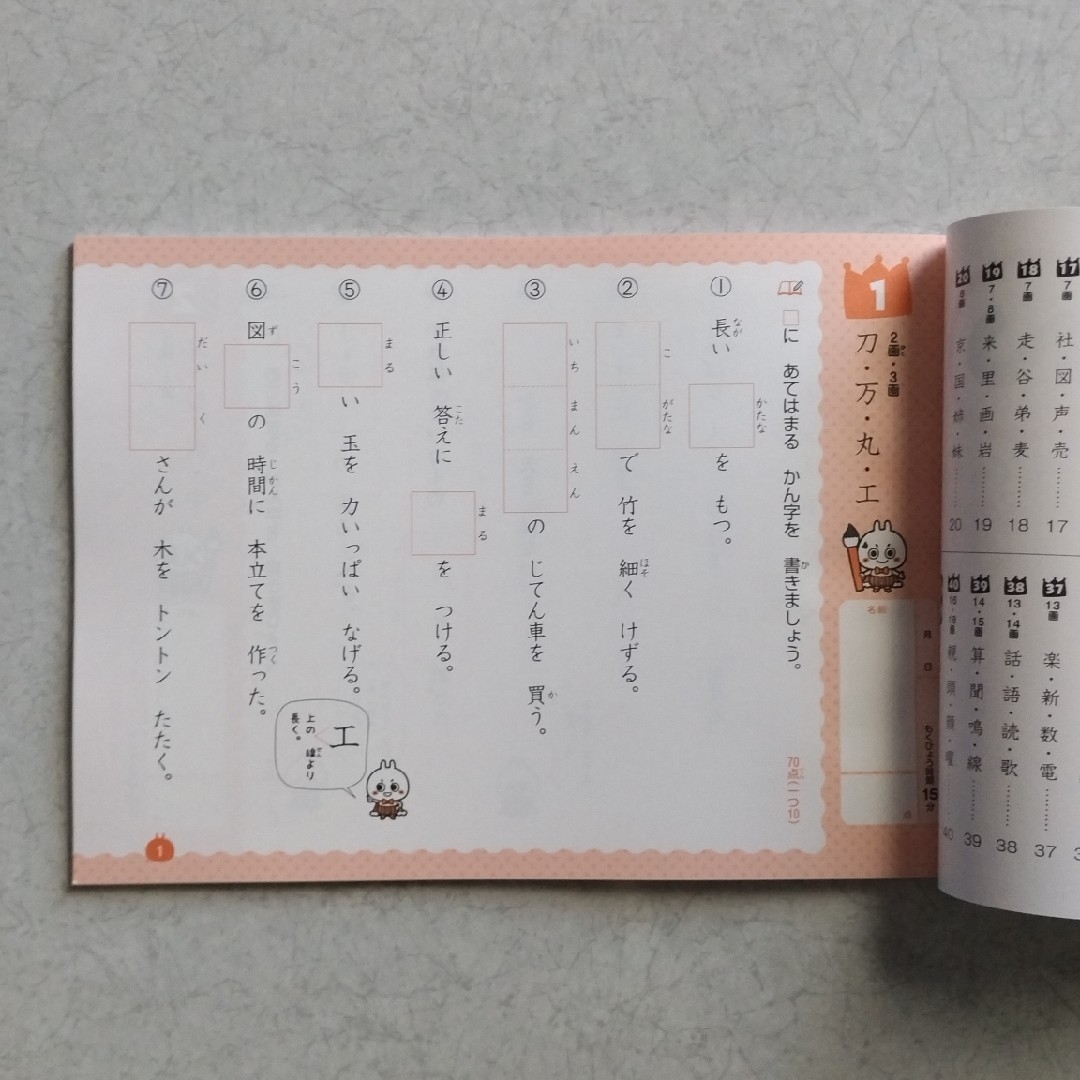 1
2画・3画
かく
刀・万・丸・工
名前
もくひょう時間
15分
点
□に あてはまる かん字を 書きましょう。
か
70点(一つ10)
① 長い□を もつ。
なが
かたな
② □□で 竹を 細く けずる。
こ がたな
ほそ
③ □□□の じてん車を 買う。
いち まん えん
か
④ 正しい 答えに □を つける。
こた
まる
⑤ □い 玉を 力いっぱい なげる。
まる
⑥ 図□の 時間に 本立てを 作った。
ず こう
じかん
つく
⑦ □□さんが 木を トントン たたく。
だい く
工
上の 線より
長く。
1
17
7画
社・図・声・売………17
18
7画
走・谷・弟・麦………18
19
7・8画
来・里・画・岩………19
20
8画
京・国・姉・妹………20
37
13画
楽・新・数・電………37
38
13・14画
話・語・読・歌………38
39
14・15画
算・聞・鳴・線………39
40
16・18画
親・頭・顔・曜………40